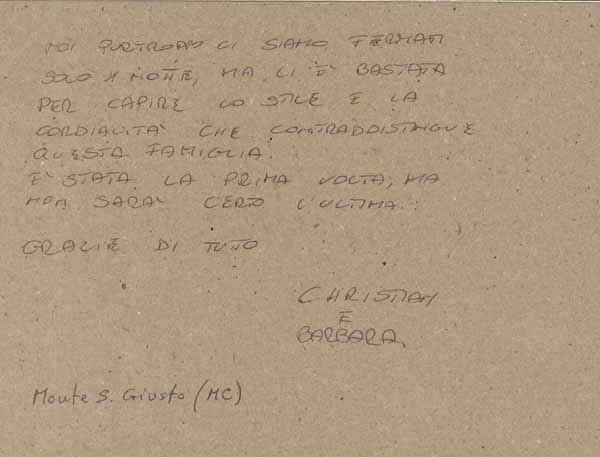 NOI PURTROPPO CI SIAMO FERMATI
SOLO 1 NOTTE, MA CI E' BASTATA
PER CAPIRE LO STILE E LA
CORDIALITA' CHE CONTRADDISTINGUE
QUESTA FAMIGLIA.
E' STATA LA PRIMA VOLTA, MA
NON SARA' CERTO L'ULTIMA.
GRAZIE DI TUTTO
CHRISTIAN
E
BARBARA
Monte S. Giusto (MC)